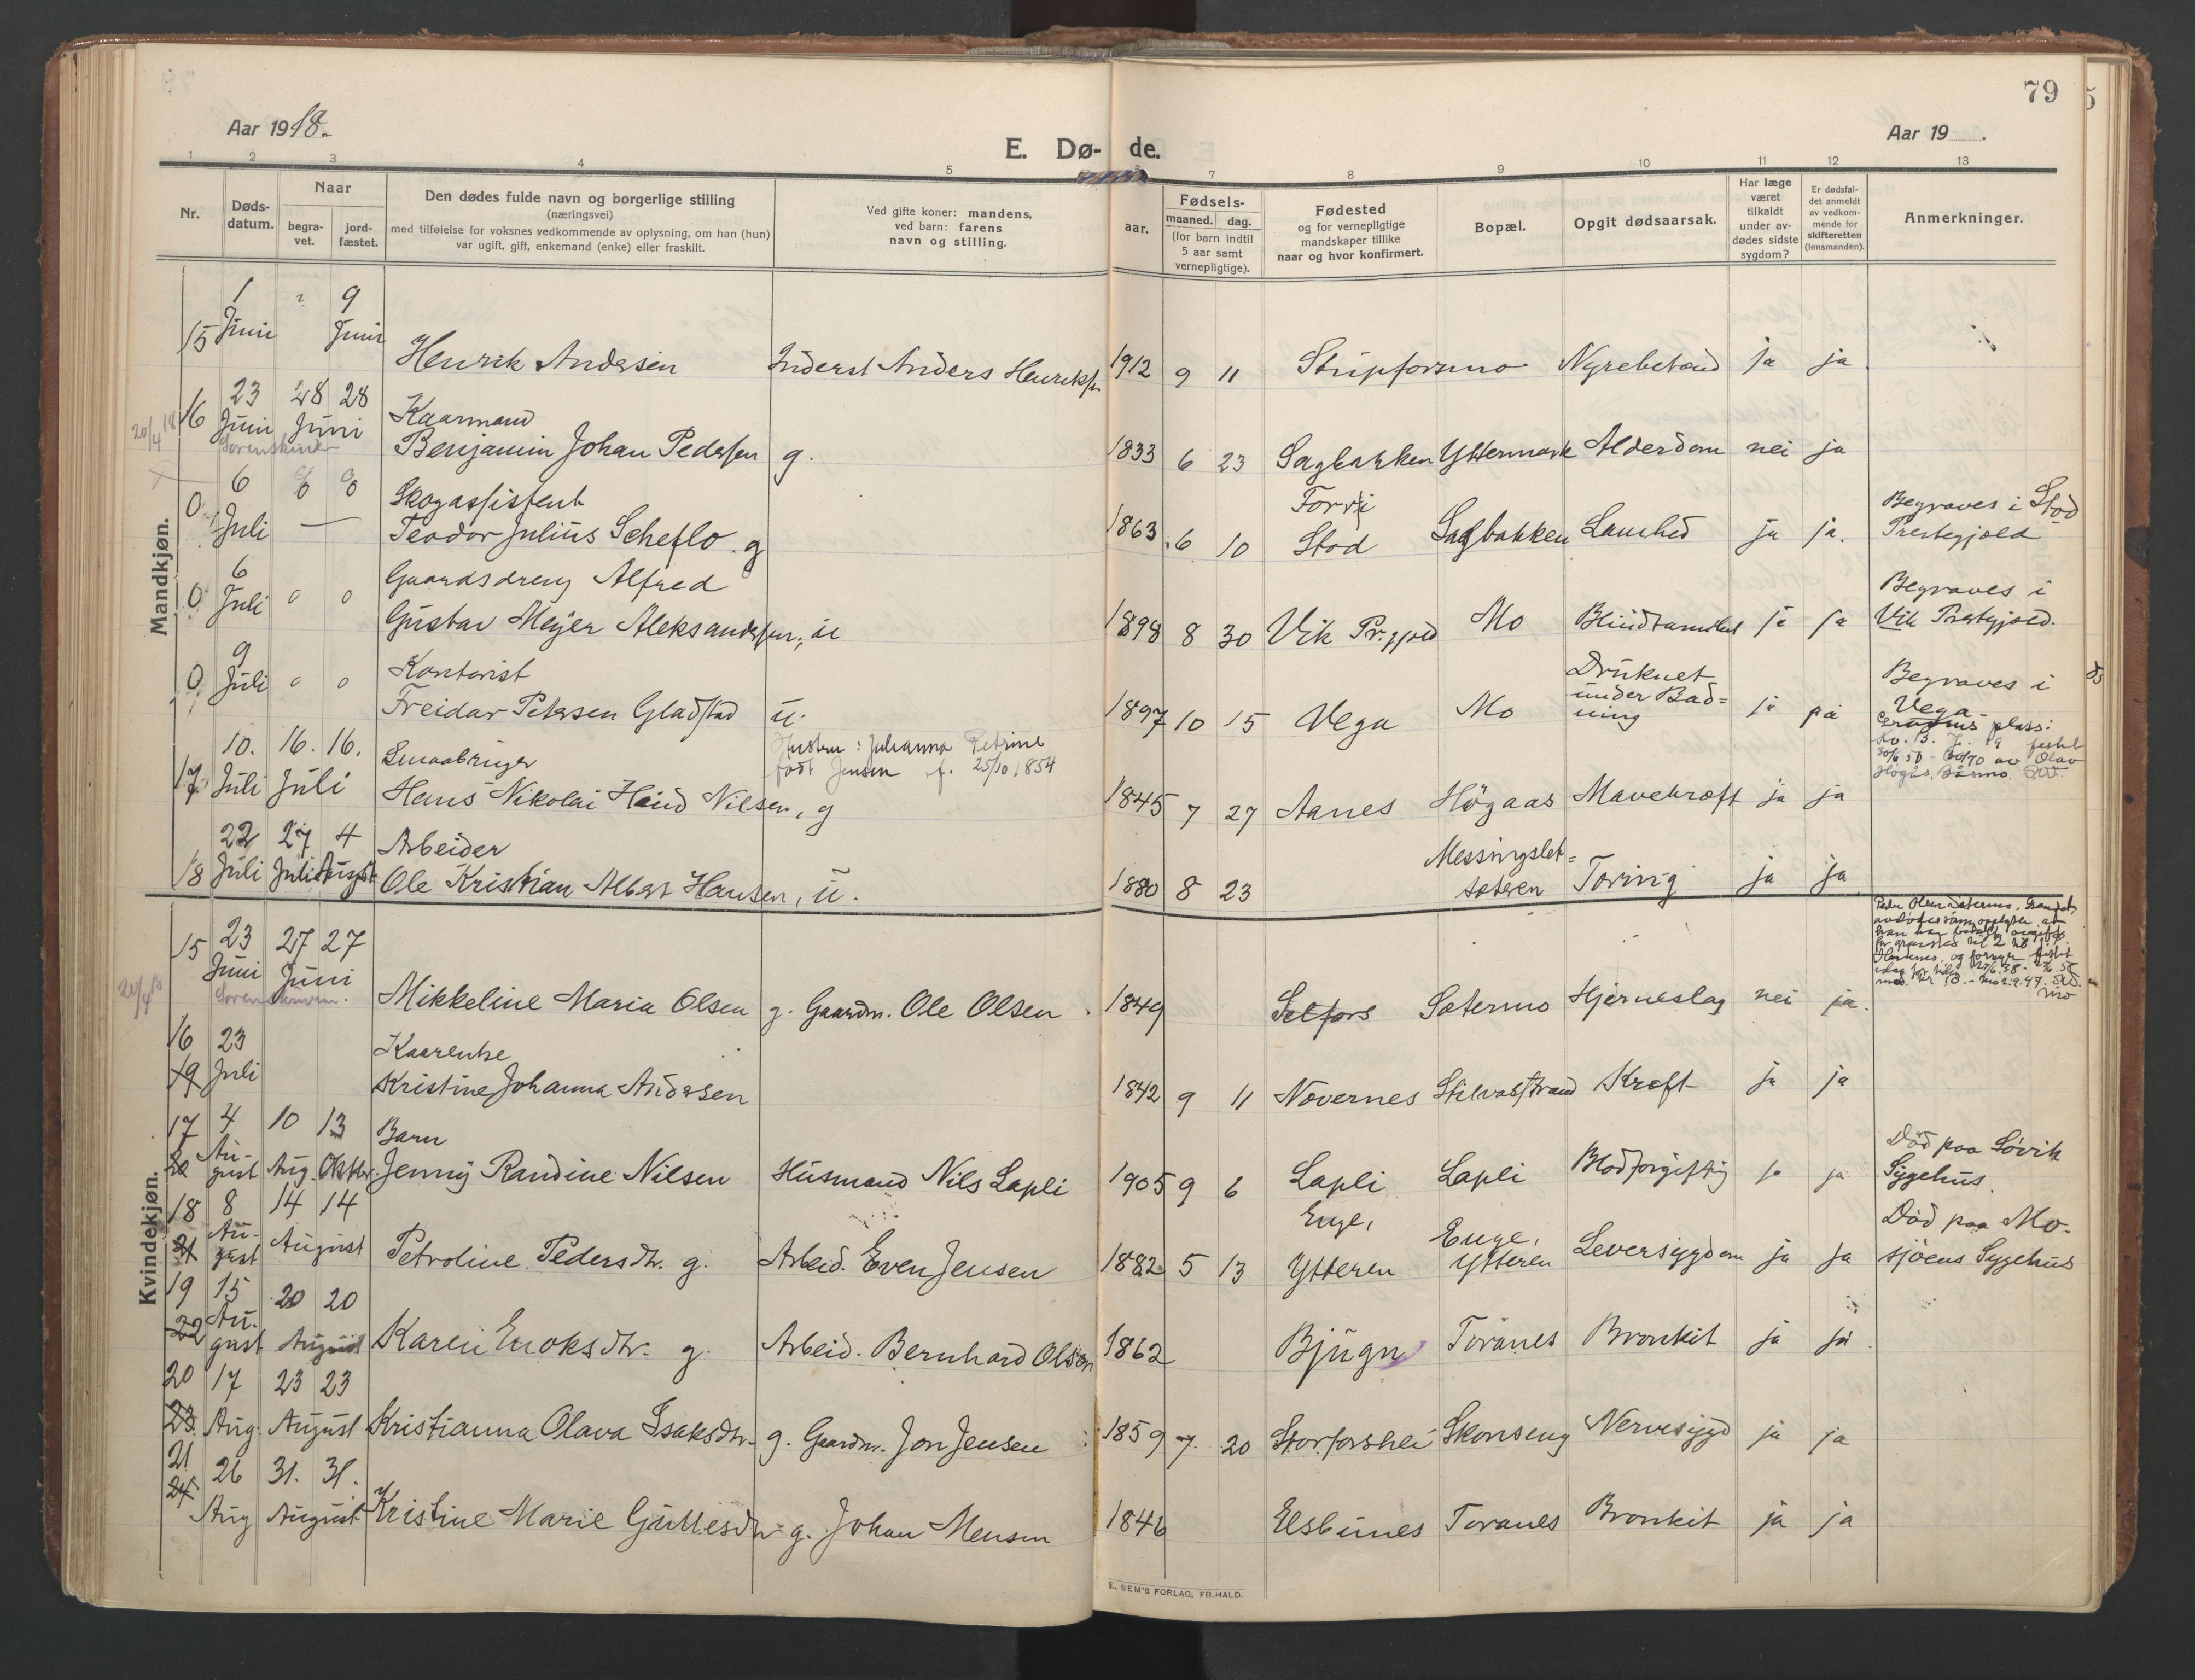 79
Aar 1918.
E. Dø- de.
Aar 19
1 2 3 4 5 6 7 8 9 10 11 12 13
Nr.
Døds-
datum.
Naar
begra-
vet.
jord-
fæstet.
Den dødes fulde navn og borgerlige stilling
(næringsvei)
med tilføielse for voksnes vedkommende av oplysning, om han (hun)
var ugift, gift, enkemand (enke) eller fraskilt.
Ved gifte koner: mandens,
ved barn: farens
navn og stilling.
aar.
Fødsels-
maaned. dag.
(for barn indtil
5 aar samt
vernepligtige).
Fødested
og for vernepligtige
mandskaper tillike
naar og hvor konfirmert.
Bopæl.
Opgit dødsaarsak.
Har læge
været
tilkaldt
under av-
dødes sidste
sygdom?
Er dødsfal-
det anmeldt
av vedkom-
mende for
skifteretten
(lensmanden).
Anmerkninger.
Mandkjøn.
1 9
15 Juni Juni
Henrik Andersen Inderst Anders Henriks. 1912 9 11 Nyrebetænd ja ja
23 28 28
16 Juni Juni Kaarmand
20/4 18 Sorenskriver
Benjamin Johan Pedersen g. 1833 6 23 Sagbakken Yttermark Alderdom nei ja
6 0 0 Skogassistent Forri
0 Juli — Teodor Julius Scheflo. g 1863 6 10 Stod Sagbakken Lamhed ja ja. Begraves i Stod
Prestegjæld
6 Gaardsdreng Alfred
0 Juli 0 0 Gustav Meyer Aleksandersen, u 1898 8 30 Vik Pr.gjæld Mo ja ja Begraves i
Vik Prestegjæld.
9 Kontorist Druknet
0 Juli 0 0 Freidar Petersen Gladstad u. 1897 10 15 Vega Mo under Bad=
ning ja ja Begraves i
Vega
10. 16. 16. Smaabruger Hustru: Julianna Petrine
født Jensen f. 25/10 1854
17 Juli Juli Hans Nikolai Nilsen, g 1845 7 27 Aanes Högaas Mavekræft ja ja
22 27 4 Arbeider Messingslet=
18 Juli Juli August Ole Kristian Albert Hansen, u. 1880 8 23 sæteren Tæring ja ja
Kvindekjøn.
15 23 27 27
Juni Juni
Mikkeline Maria Olsen g. Gaardm. Ole Olsen 1849 Selfors Sætermo Hjerneslag nei ja.
16 23 Kaarenke
19 Juli Kristine Johanna Andersen 1842 9 11 Nævernes Stilvasstrand Kræft ja ja
17 4 10 13 Barn
20 Au-
gust Aug. Oktbr. Jenny Randine Nilsen Husmand Nils Lapli 1905 9 6 Lapli Lapli Blodforgiftig ja ja Död paa Sövik
Sygehus.
18 8 14 14 Enge,
21 Au-
gust August Petroline Pedersdtr. g. Arbeid. Even Jensen 1882 5 13 Ytteren Enge,
Ytteren Leversygdom ja ja Död paa Mo-
sjöens Sygehus
19 15 20 20
22 Au-
gust August Karen Enoksdtr. g. Arbeid. Bernhard Olsen 1862 Bjugn Toranes Bronkit ja ja
20 17 23 23
23 Aug. August Kristianna Olava Isaksdtr. g. Gaardm. Jon Jensen 1859 7 20 Storforshei Skonseng Nervesygd ja ja
21 26 31. 31.
24 Aug August Kristine Marie Gullesdtr g. Johan Mensen 1846 Toranes Bronkit ja ja
E. SEM'S FORLAG, FR.HALD.